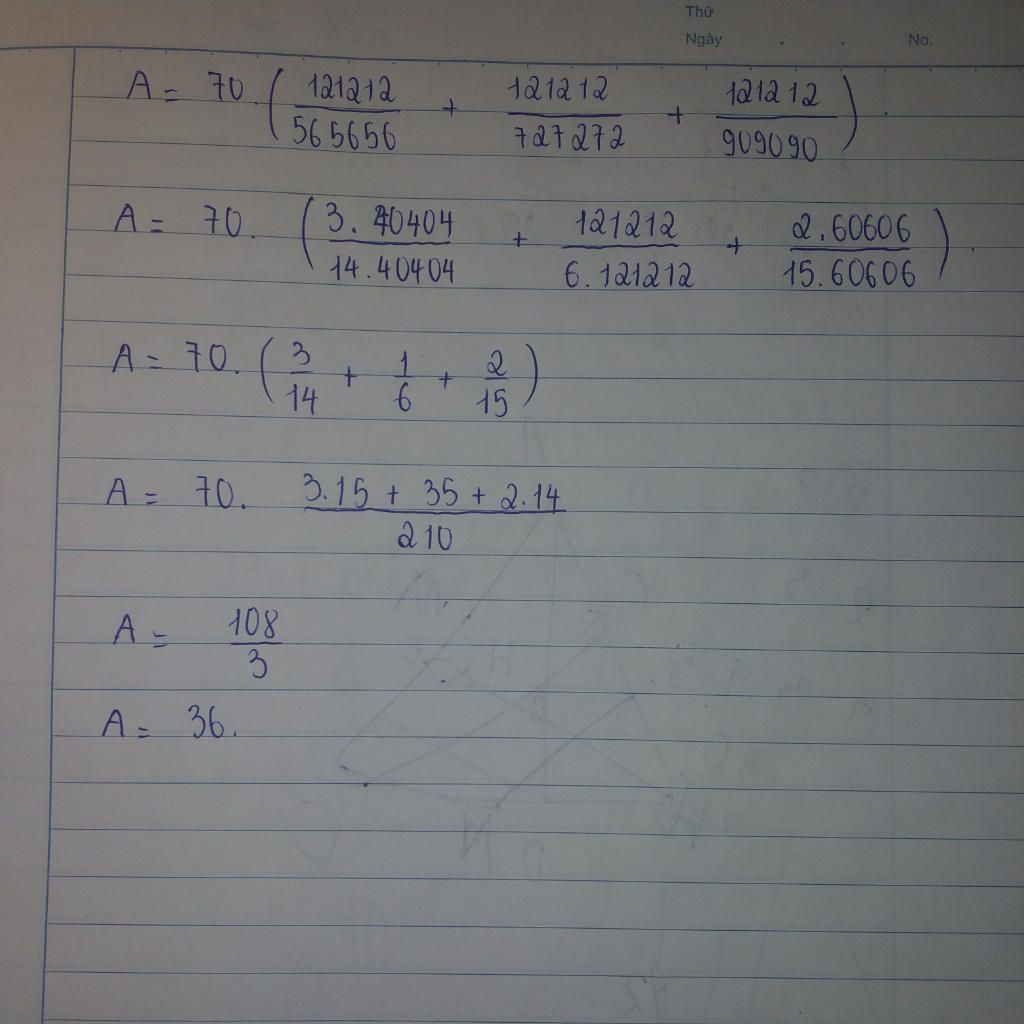 Thứ
Ngày . . No.
A = 70. ( 121212/565656 + 121212/727272 + 121212/909090 ) .
A = 70. ( 3.40404/14.40404 + 121212/6.121212 + 2.60606/15.60606 ) .
A = 70. ( 3/14 + 1/6 + 2/15 )
A = 70. 3.15 + 35 + 2.14/210
A = 108/3
A = 36.